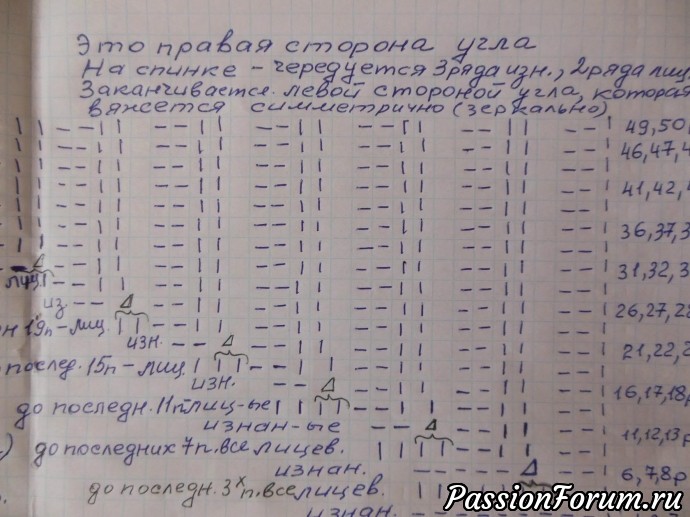 Это правая сторона угла
На спинке - чередуется 3 ряда изн., 2 ряда лиц
Заканчивается левой стороной угла, которая
вяжется симметрично (зеркально)
49,50,
46,47,4
41,42,
36,37,3
лиц. 31,32,3
из 26,27,28
н 19п-лиц.
изн. 21,22,2
послед. 15п-лиц.
изн. 16,17,18р
до последн. 11п лиц-ые
изнан-ые 11,12,13р
) до последних 7п. все лицев.
изнан. 6,7,8р
до последн. 3х п. все лицев.
изнан.
PassionForum.ru